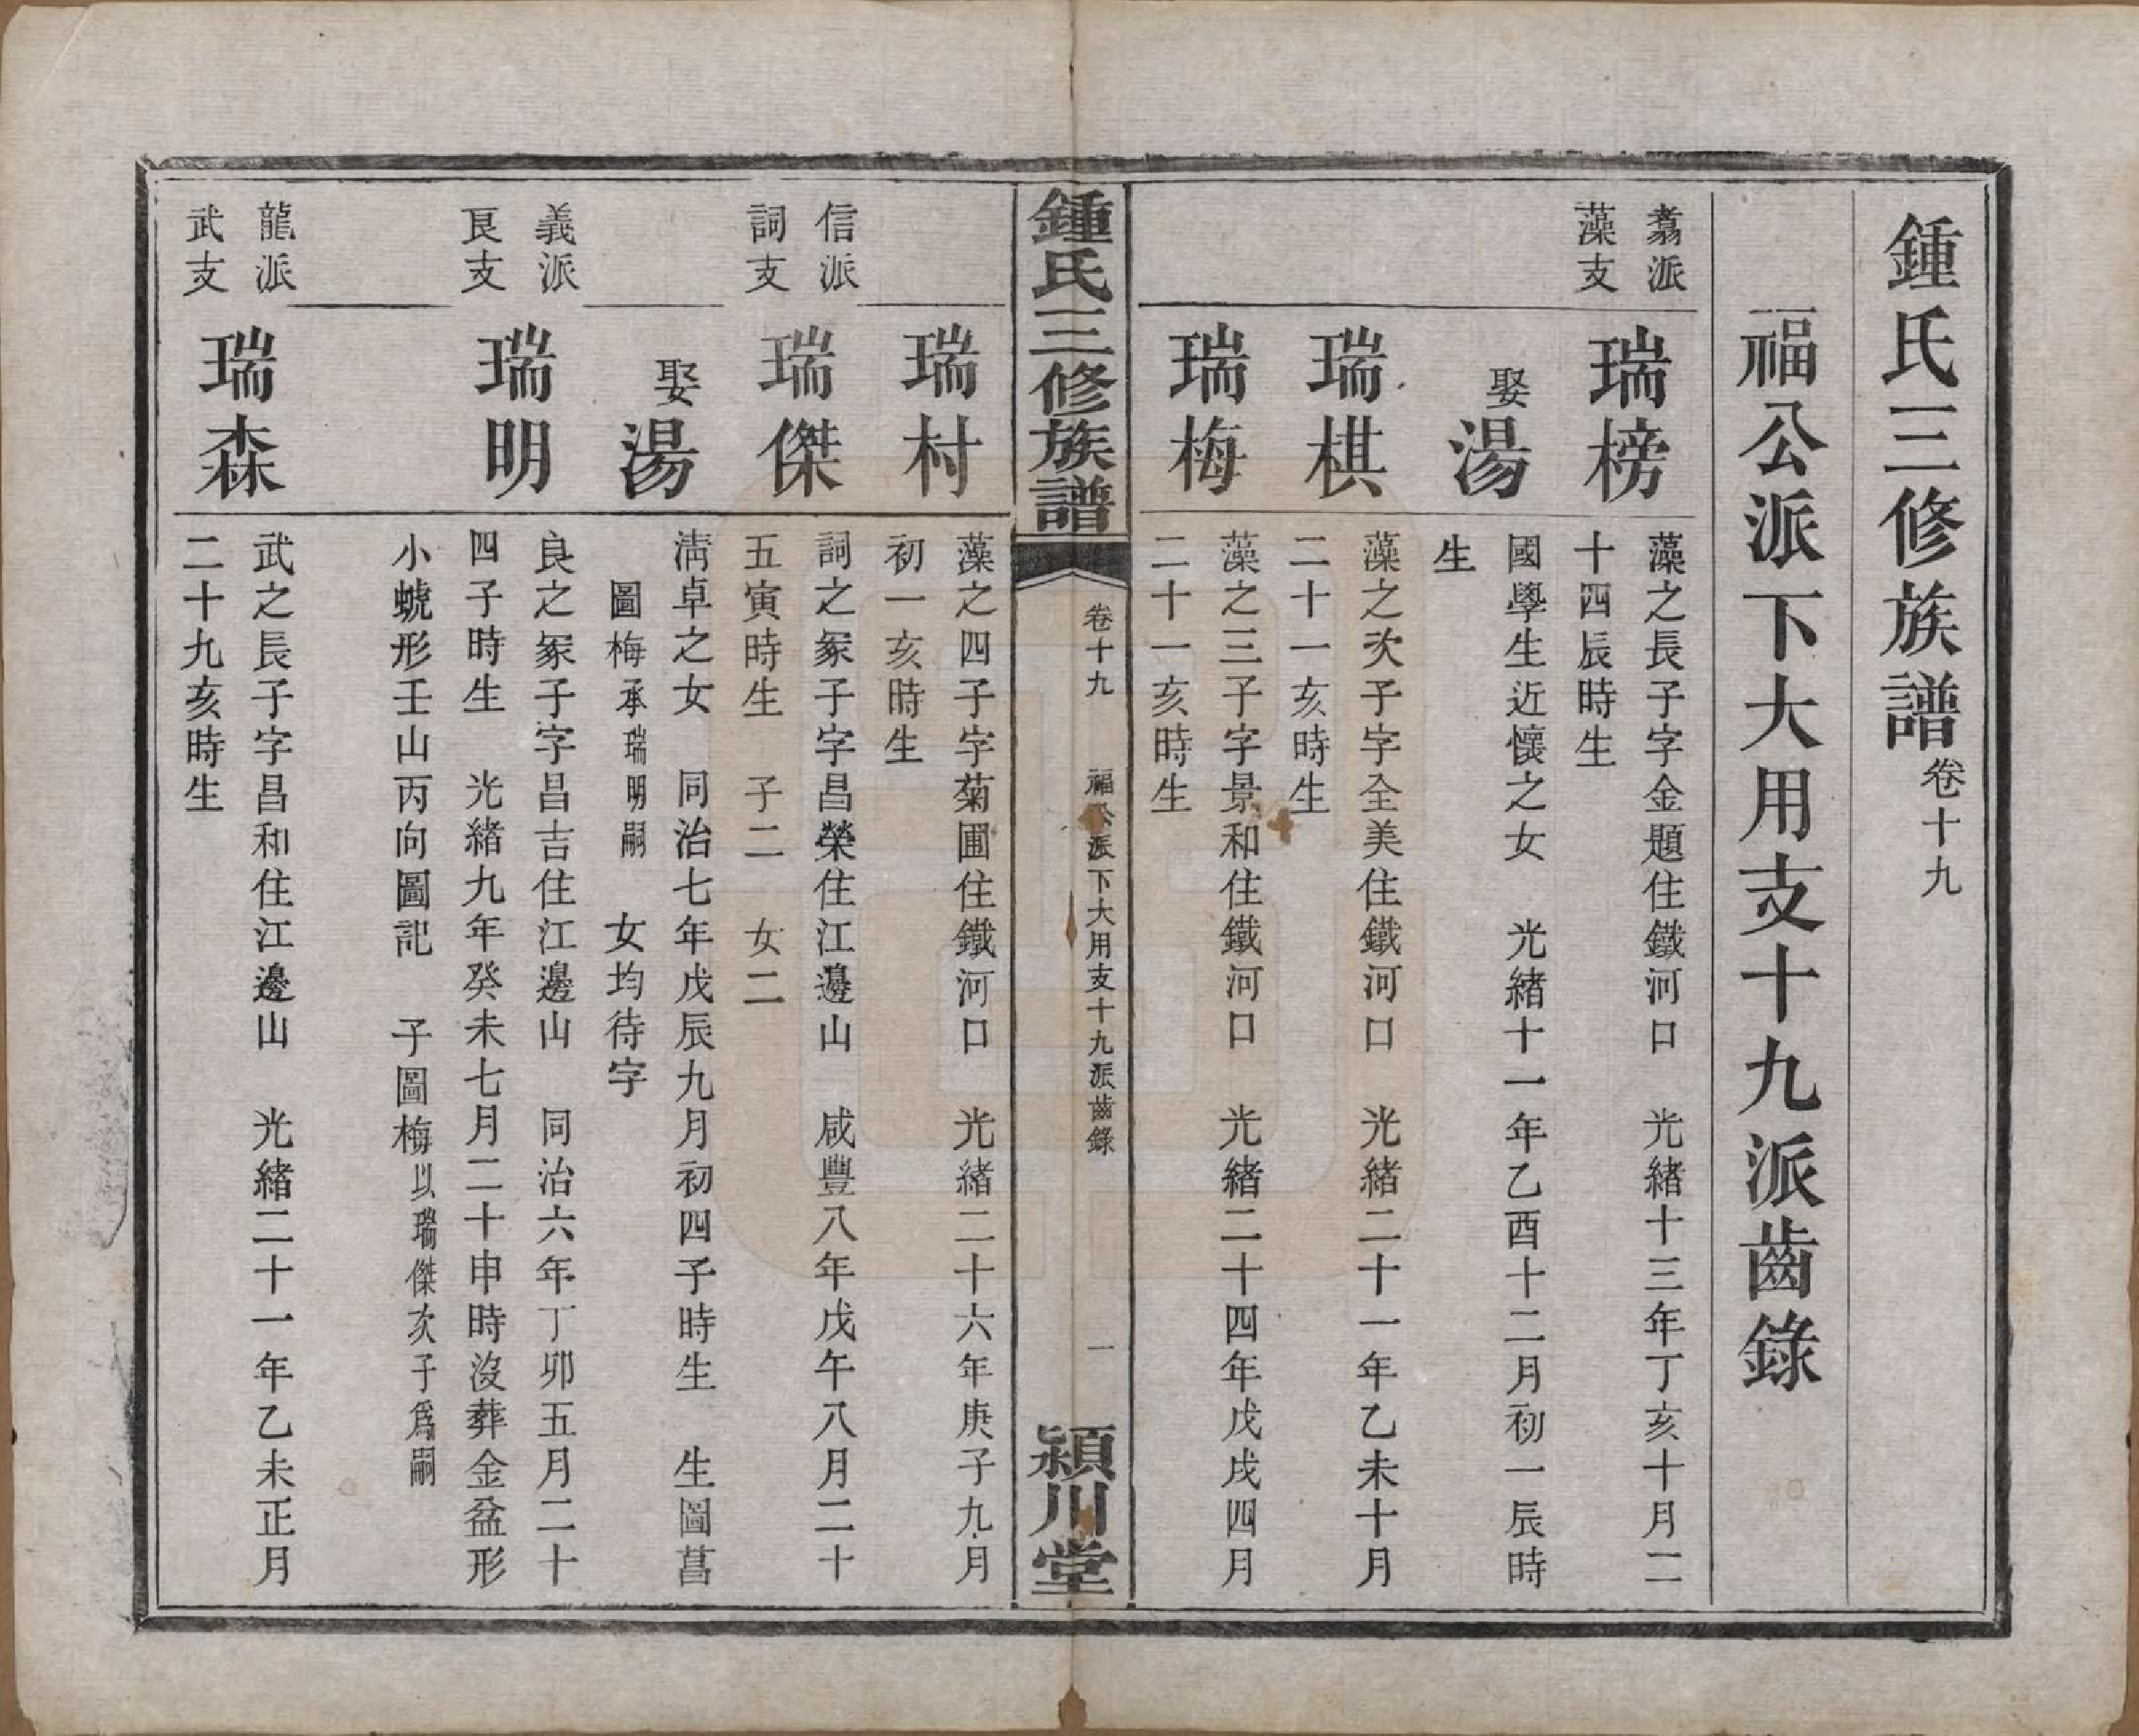 鍾氏三修族譜卷十九
福公派下大用支十九派齒錄
翥派
藻支
瑞榜
藻之長子字金題住鐵河口 光緒十三年丁亥十月二
十四辰時生
娶湯
國學生近懷之女 光緒十一年乙酉十二月初一辰時
生
瑞棋
藻之次子字全美住鐵河口 光緒二十一年乙未十月
二十一亥時生
瑞梅
藻之三子字景和住鐵河口 光緒二十四年戊戌四月
二十一亥時生
鍾氏三修族譜
卷十九 福公派下大用支十九派齒錄
一
潁川堂
瑞村
藻之四子字菊圃住鐵河口 光緒二十六年庚子九月
初一亥時生
信派
詞支
瑞傑
詞之冢子字昌榮住江邊山 咸豐八年戊午八月二十
五寅時生 子二 女二
娶湯
淸卓之女 同治七年戊辰九月初四子時生 生圖菖
圖梅承瑞明嗣 女均待字
義派
良支
瑞明
良之冢子字昌吉住江邊山 同治六年丁卯五月二十
四子時生 光緒九年癸未七月二十申時沒葬金盆形
小螔形壬山丙向圖記 子圖梅以瑞傑次子爲嗣
龍派
武支
瑞森
武之長子字昌和住江邊山 光緒二十一年乙未正月
二十九亥時生